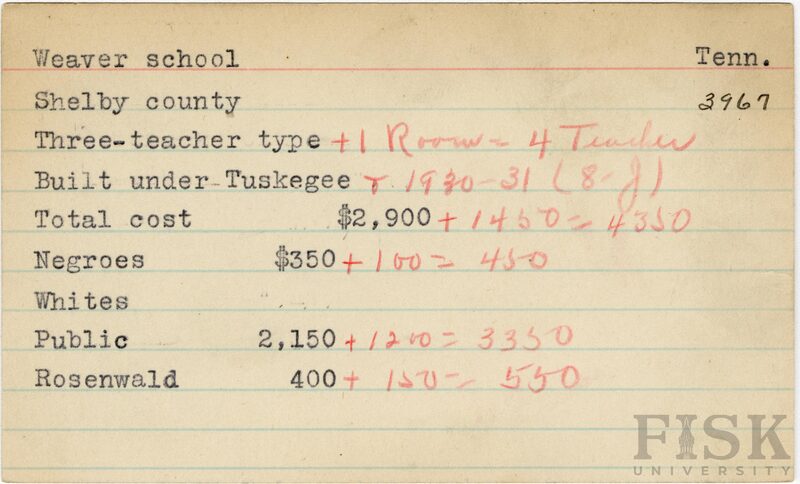 Weaver school Tenn.
Shelby county 3967
Three-teacher type +1 Room = 4 Teacher
Built under Tuskegee & 1930-31 (8-J)
Total cost $2,900 + 1450 = 4350
Negroes $350 + 100 = 450
Whites
Public 2,150 + 1200 = 3350
Rosenwald 400 + 150 = 550
FISK
UNIVERSITY